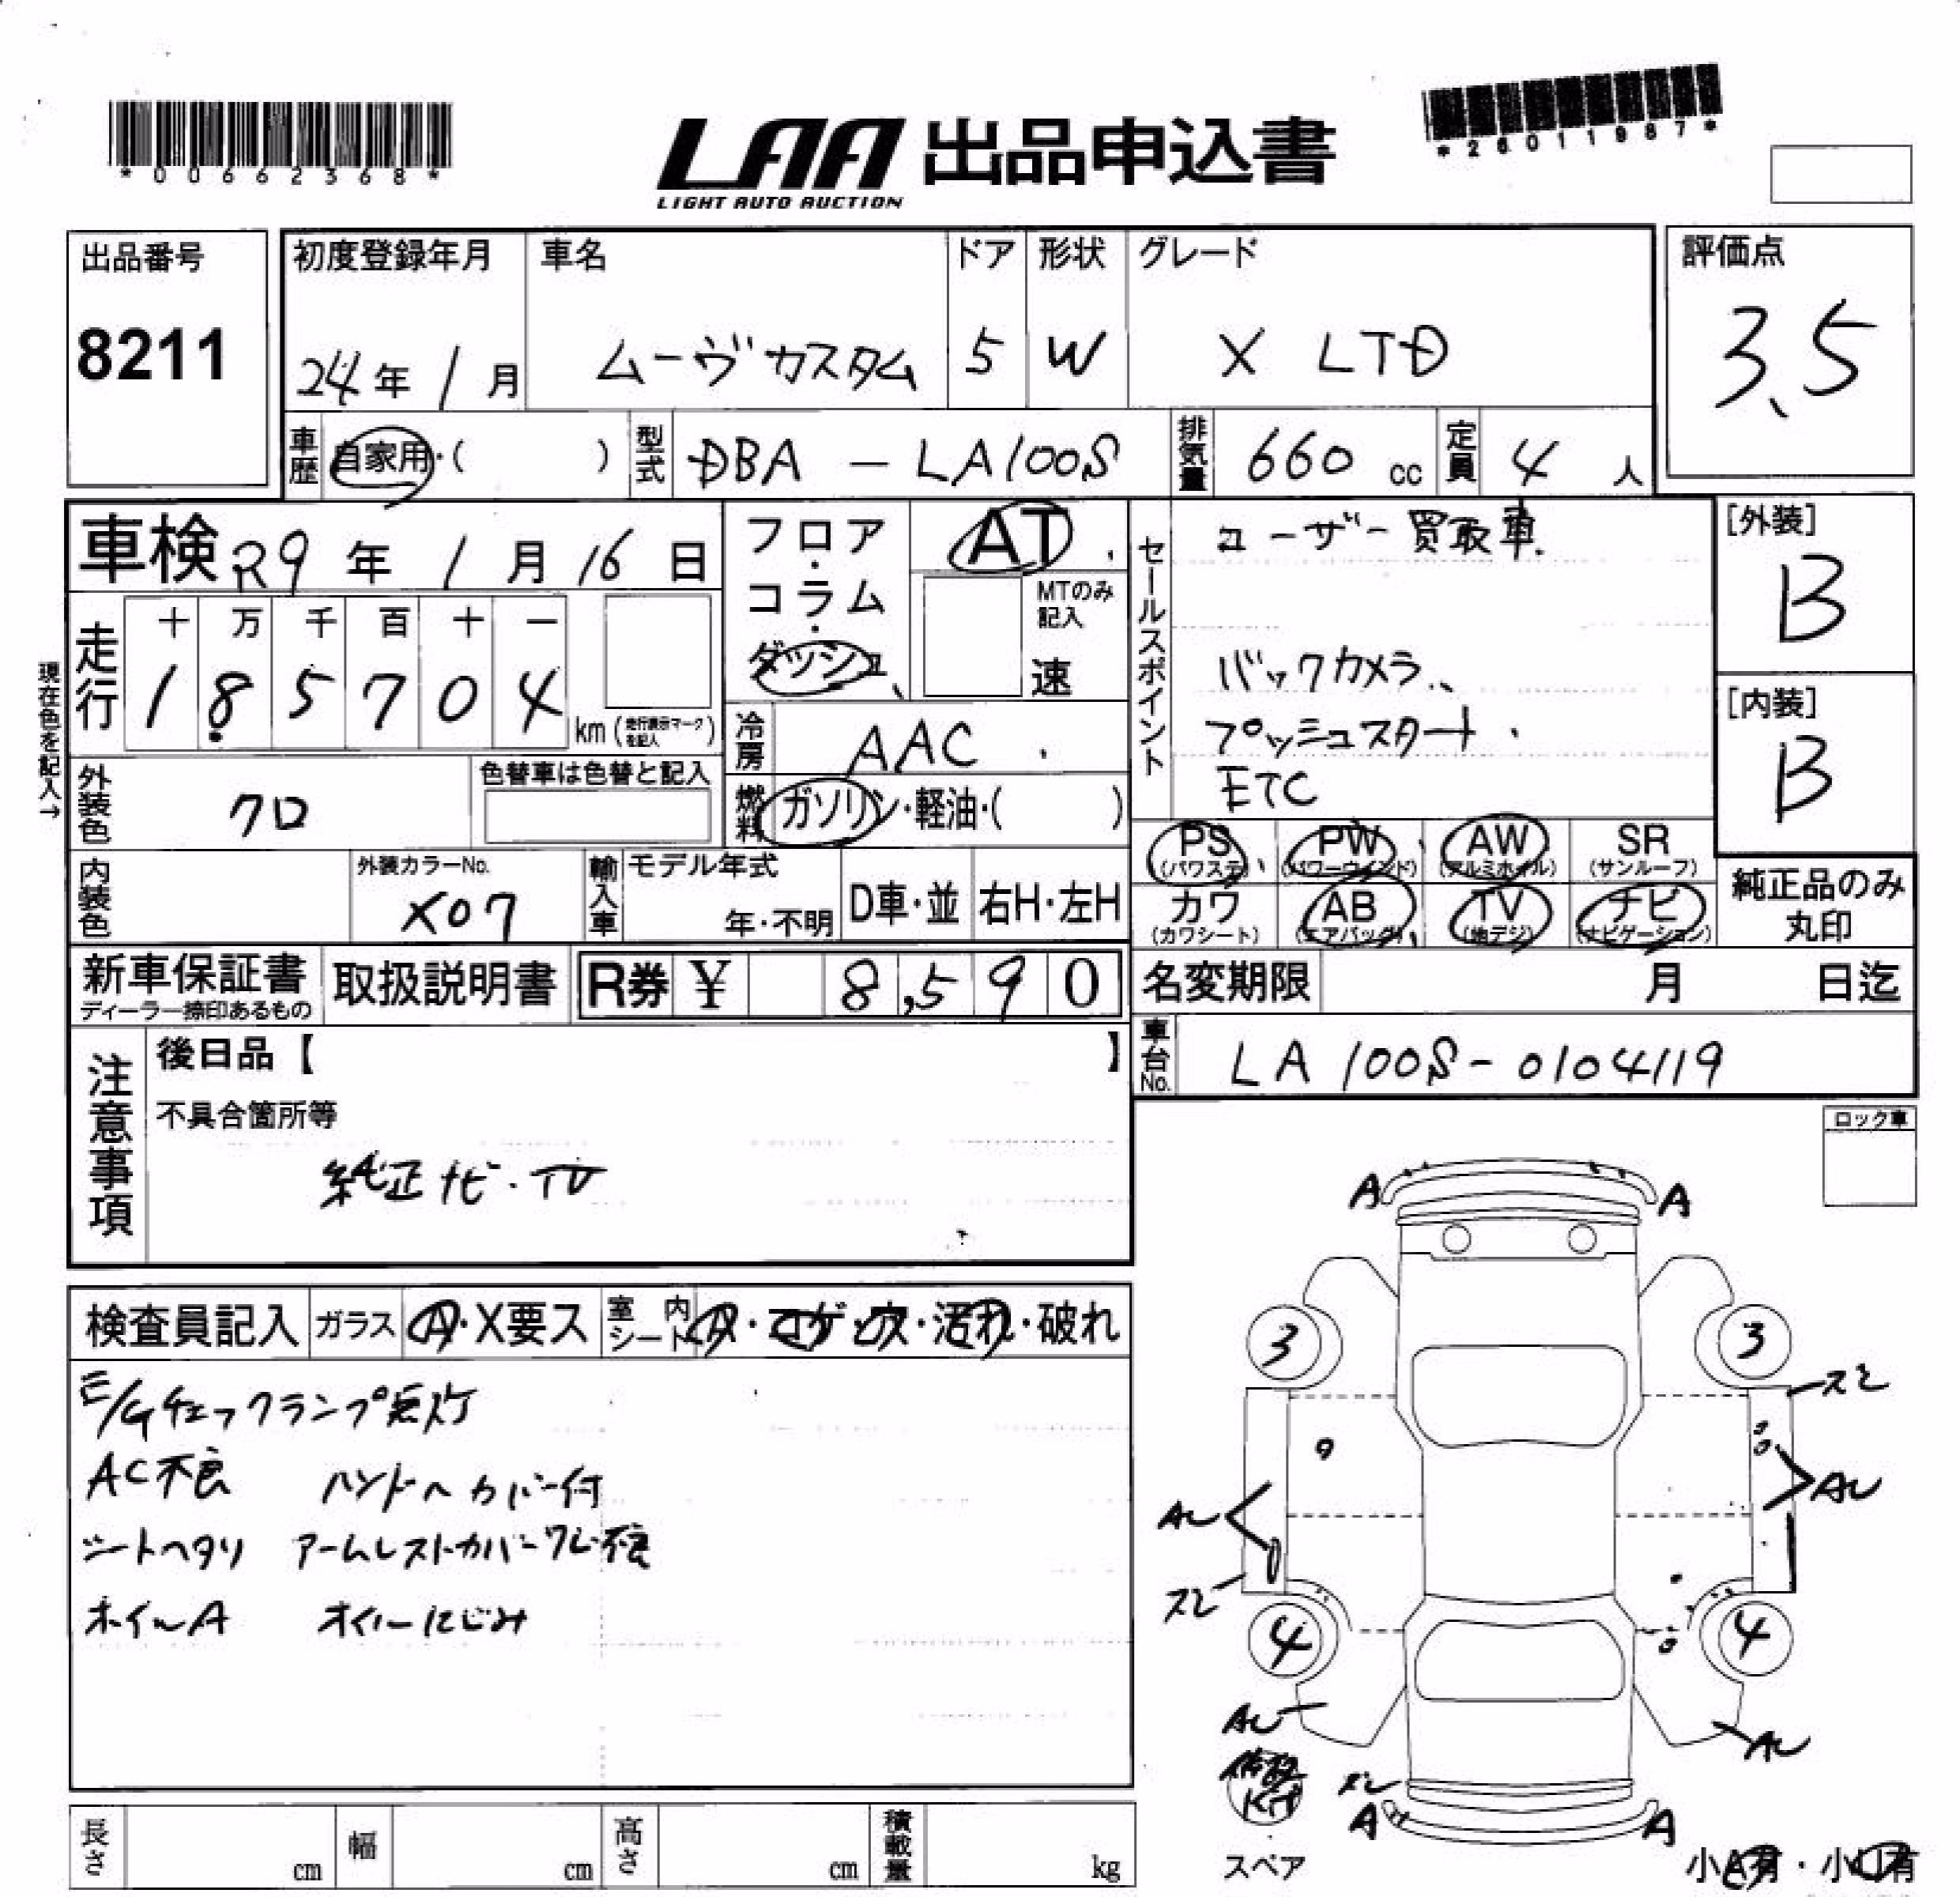 *00662368*
LAA 出品申込書
LIGHT AUTO AUCTION
*26011987*
出品番号
8211
初度登録年月
24年 1月
車名
ムーヴカスタム
ドア
5
形状
W
グレード
X LTD
評価点
3.5
車歴
自家用・( )
型式
DBA - LA100S
排気量
660 cc
定員
4 人
車検 R9年 1月 16日
走行
十 万 千 百 十 一
1 8 5 7 0 4 km (走行表示マークを記入)
現在色を記入→
フロア・コラム・ダッシュ
AT
MTのみ記入
速
冷房
AAC
燃料
ガソリン・軽油・( )
セールスポイント
ユーザー買取車.
バックカメラ、
プッシュスタート・
ETC
[外装]
B
[内装]
B
外装色
クロ
色替車は色替と記入
内装色
外装カラーNo.
X07
輸入車
モデル年式
年・不明
D車・並
右H・左H
PS (パワステ)
PW (パワーウインド)
AW (アルミホイル)
SR (サンルーフ)
カワ (カワシート)
AB (エアバッグ)
TV (地デジ)
ナビ (ナビゲーション)
純正品のみ丸印
新車保証書
ディーラー捺印あるもの
取扱説明書
R券 ¥ 8,590
名変期限 月 日迄
車台No.
LA100S-0104119
注意事項
後日品【 】
不具合箇所等
純正ナビ・TV
ロック車
検査員記入
ガラス
A・X要ス
室内シート
A・コゲ・穴・汚れ・破れ
E/Gチェックランプ点灯
AC不良 ハンドルカバー付
シートヘタリ アームレストカバーフレ不良
ホイルA オイルにじみ
A A
3 3
スレ
AU AU
スレ
4 4
AU AU
修理Kit
スレ
A A
スペア
小A有・小U有
長さ cm
幅 cm
高さ cm
積載量 kg